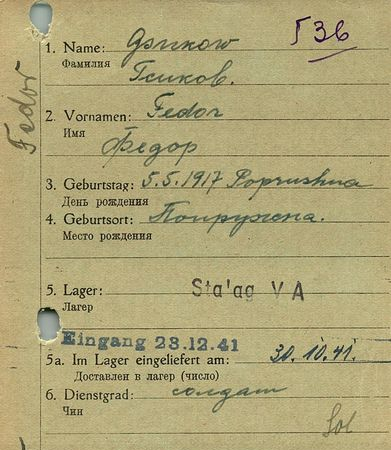 Г 36
1. Name:
Фамилия
2. Vornamen: Fedor
Имя Федор
3. Geburtstag: 5.5.1917
День рождения
4. Geburtsort:
Место рождения
5. Lager: Sta'ag V A
Лагер
Eingang 23.12.41
5a. Im Lager eingeliefert am: 30.10.41.
Доставлен в лагер (число)
6. Dienstgrad: солдат
Чин
Sol
Fedor